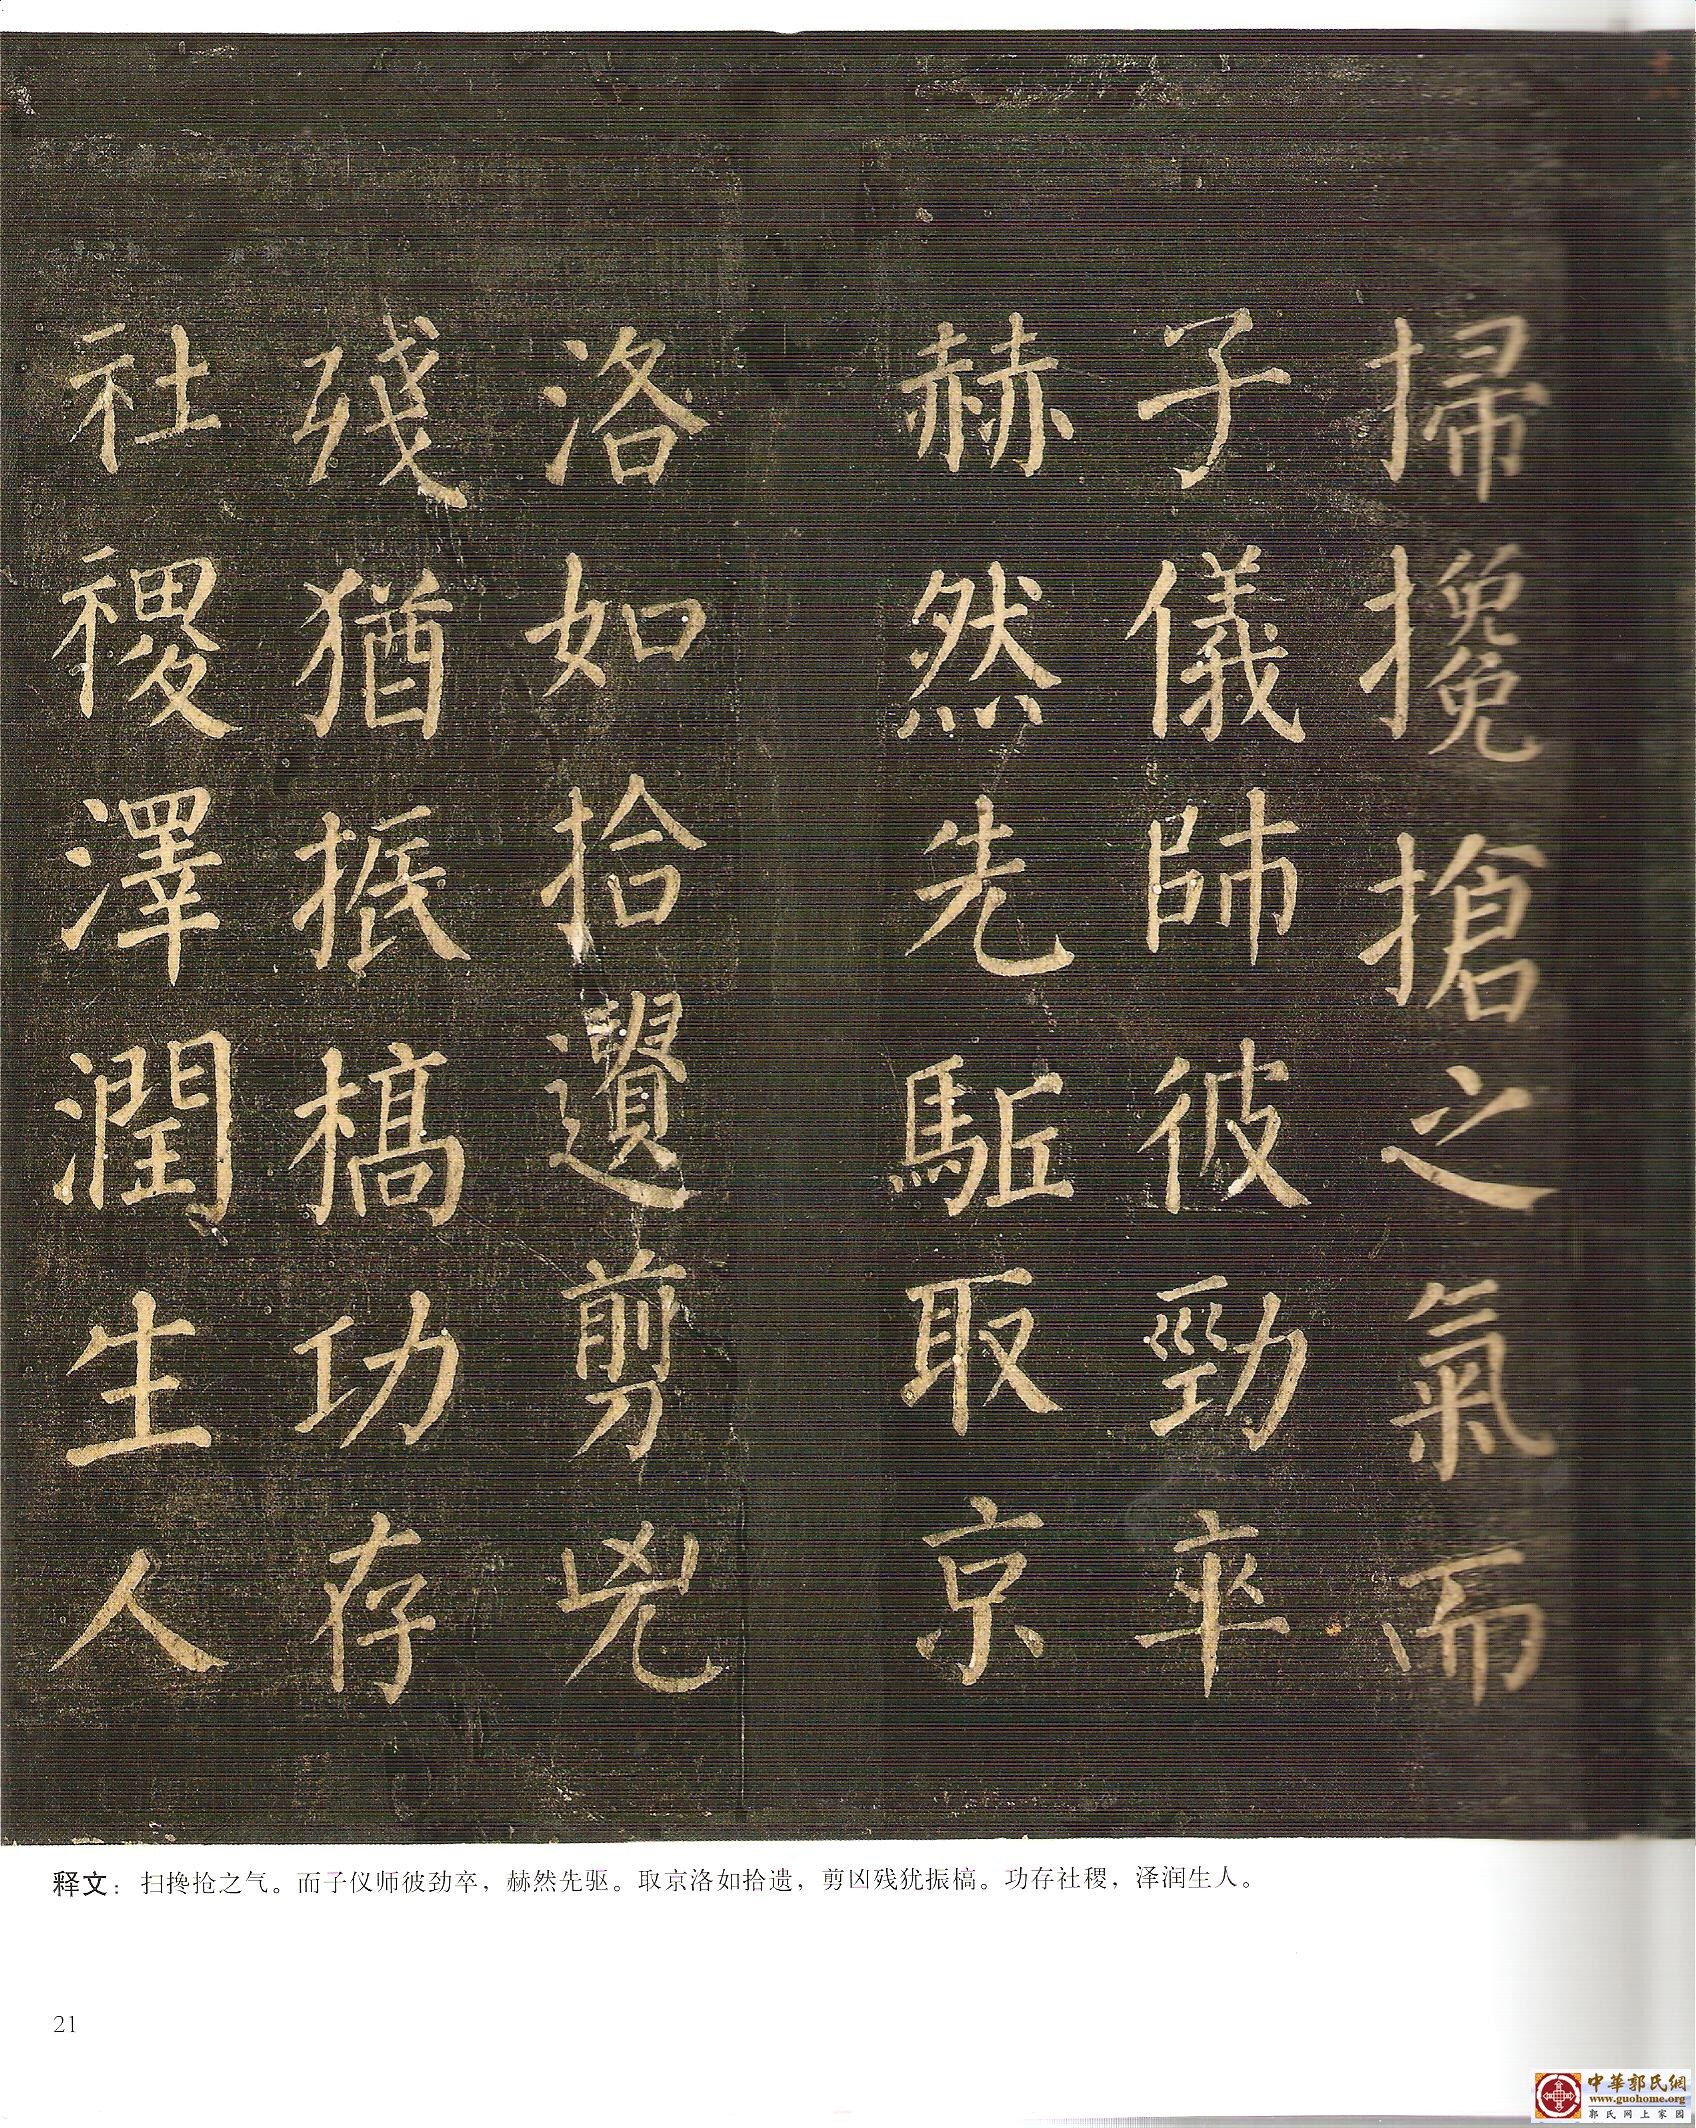 掃攙搶之氣而
子儀師彼勁卒
赫然先駈取京
洛如拾遺剪兇
殘猶振槁功存
社稷澤潤生人
释文：扫搀抢之气。而子仪师彼劲卒，赫然先驱。取京洛如拾遗，剪凶残犹振槁。功存社稷，泽润生人。
21
中華郭氏網
www.guohome.org
郭氏网上家园